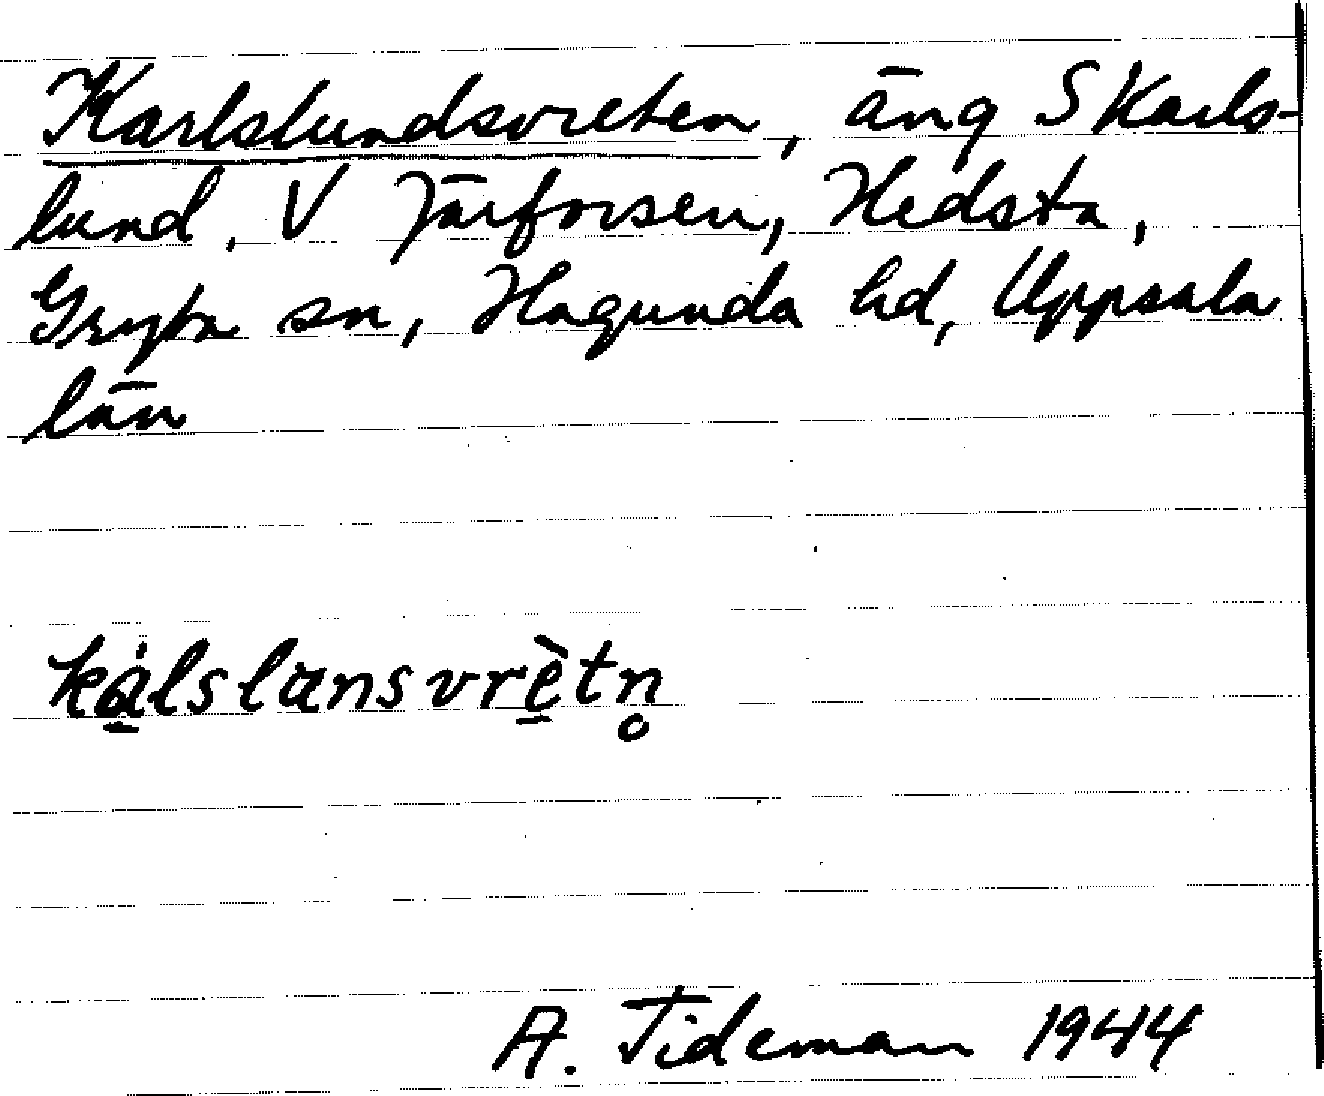 Karlslundsvreten, äng S Karls-
lund, V Järforsen, Hedsta,
Gryta sn, Hagunda hd, Uppsala
län
kȧ̱lslansvrè̱tn̥
A. Tideman 1944